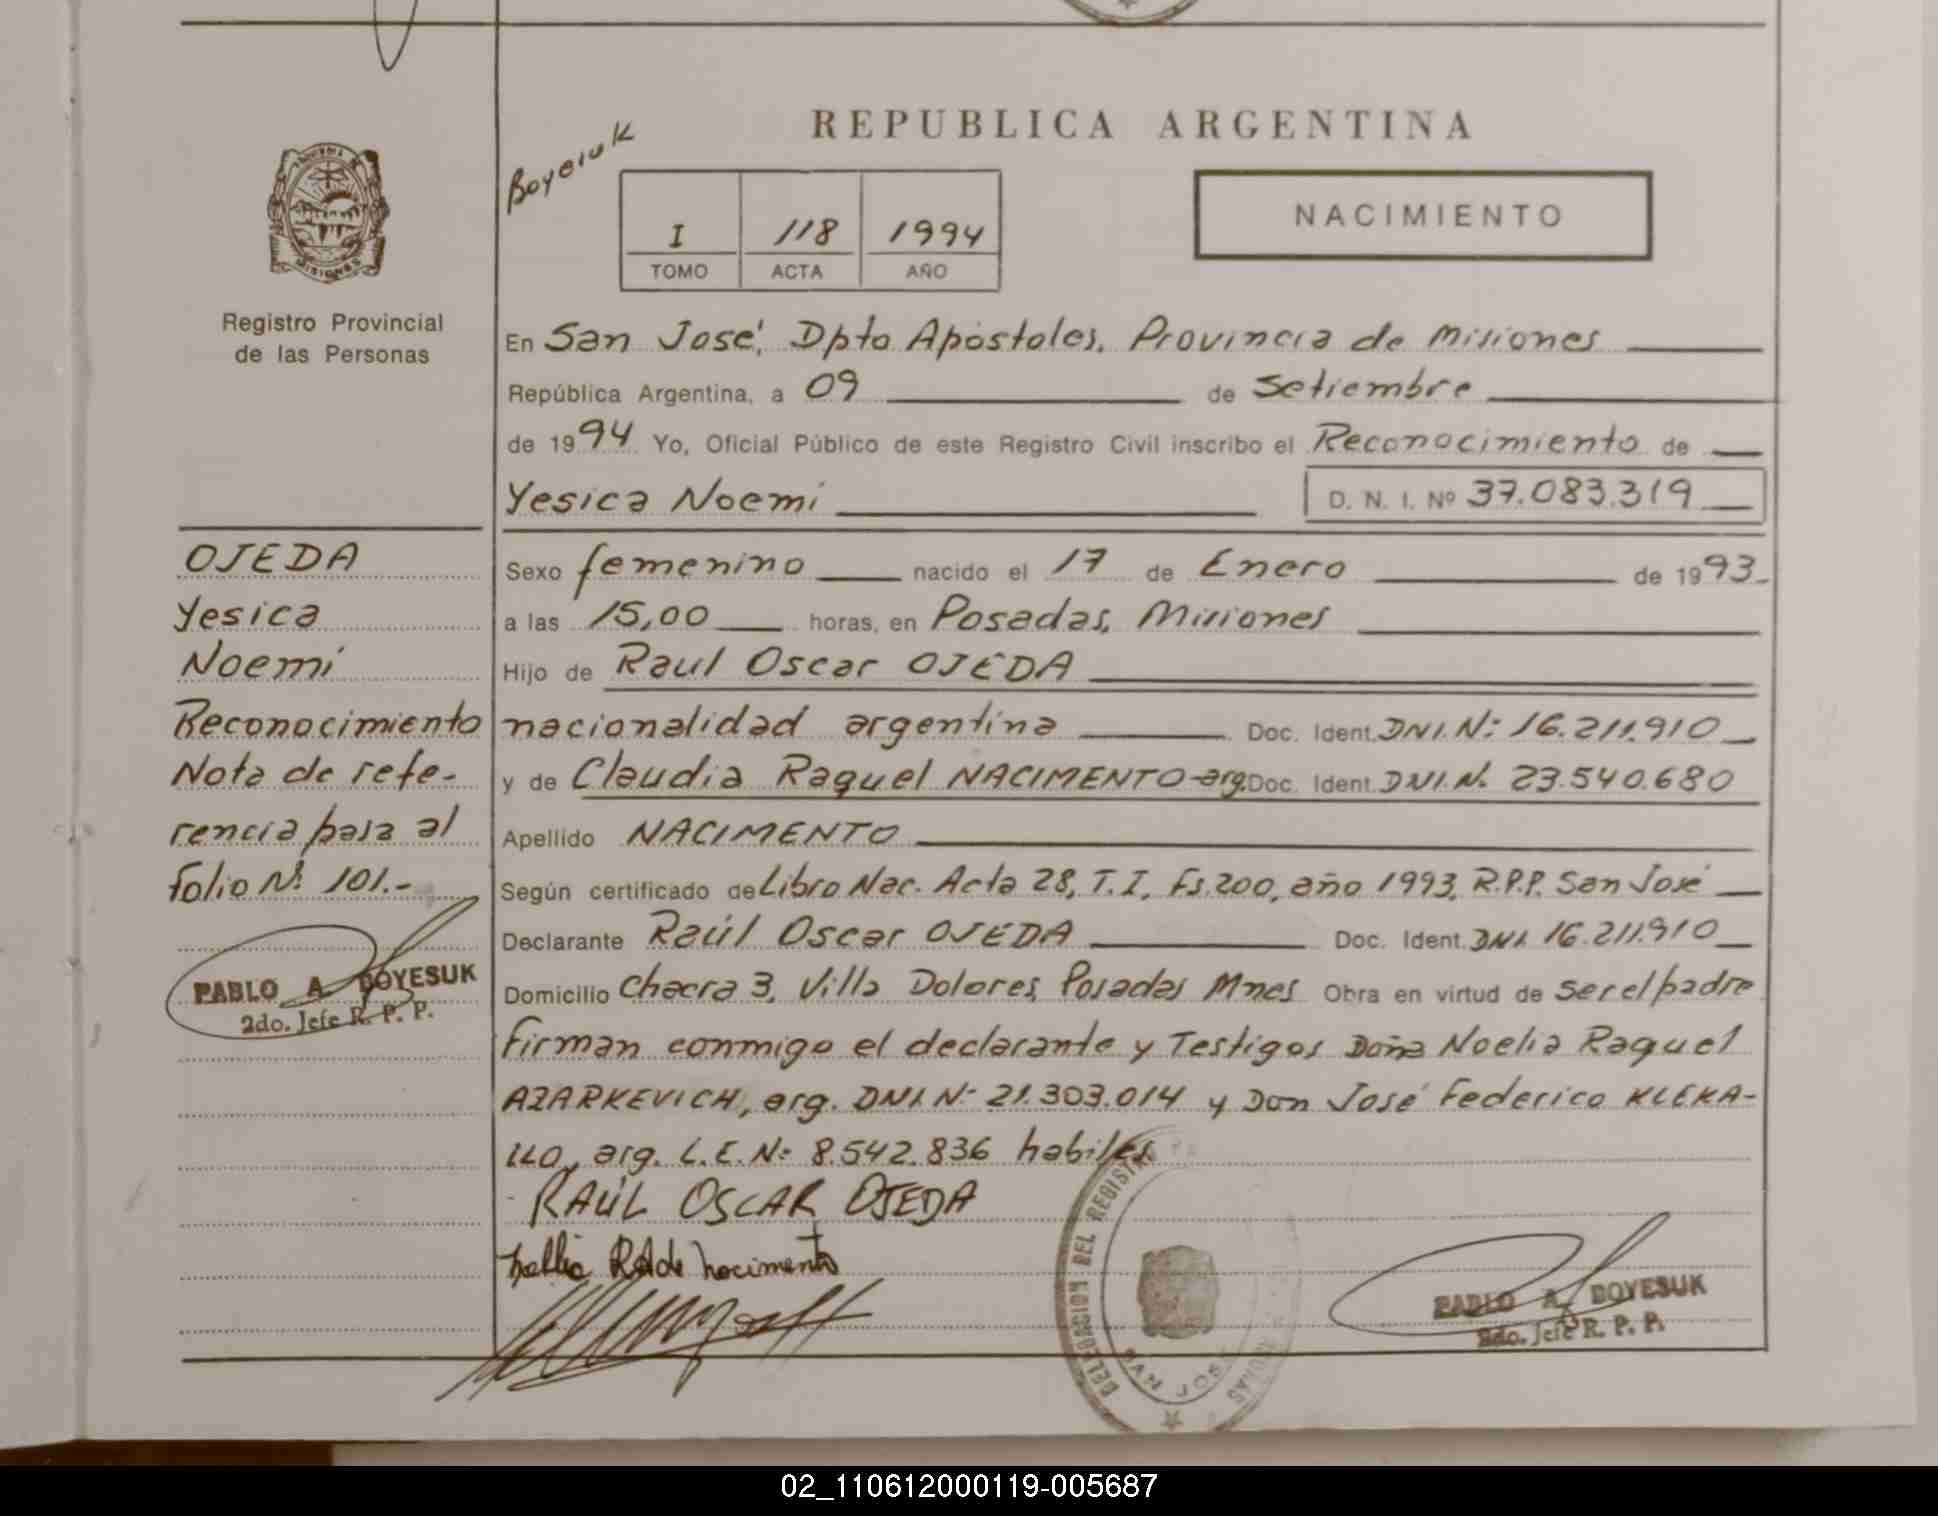 REPUBLICA ARGENTINA
I 118 1994
TOMO ACTA AÑO
NACIMIENTO
MISIONES
Registro Provincial
de las Personas
En San José, Dpto Apóstoles, Provincia de Misiones
República Argentina, a 09 de Setiembre
de 1994 Yo, Oficial Público de este Registro Civil inscribo el Reconocimiento de
Yesica Noemí D. N. I. Nº 37.083.319
OJEDA
Yesica
Noemí
Reconocimiento
Nota de refe-
rencia pasa al
folio Nº 101.-
PABLO A. BOYESUK
2do. Jefe R. P. P.
Sexo femenino nacido el 17 de Enero de 1993
a las 15,00 horas, en Posadas, Misiones
Hijo de Raul Oscar OJEDA
nacionalidad argentina Doc. Ident. DNI. Nº 16.211.910
y de Claudia Raquel NACIMENTO-arg. Doc. Ident. DNI. Nº 23.540.680
Apellido NACIMENTO
Según certificado de Libro Nac. Acta 28, T. I, Fs. 200, año 1993, R.P.P. San José
Declarante Raúl Oscar OJEDA Doc. Ident. DNI. 16.211.910
Domicilio Chacra 3, Villa Dolores Posadas Mnes Obra en virtud de ser el padre
Firman conmigo el declarante y Testigos Doña Noelia Raquel
AZARKEVICH, arg. DNI. Nº 21.303.014 y Don José Federico KLEKA-
LLO, arg. L.E. Nº 8.542.836 habiles
RAÚL OSCAR OJEDA
de Nacimento
DELEGACION DEL REGISTRO
SAN JOSE
PABLO A. BOYESUK
2do. Jefe R. P. P.
02_110612000119-005687